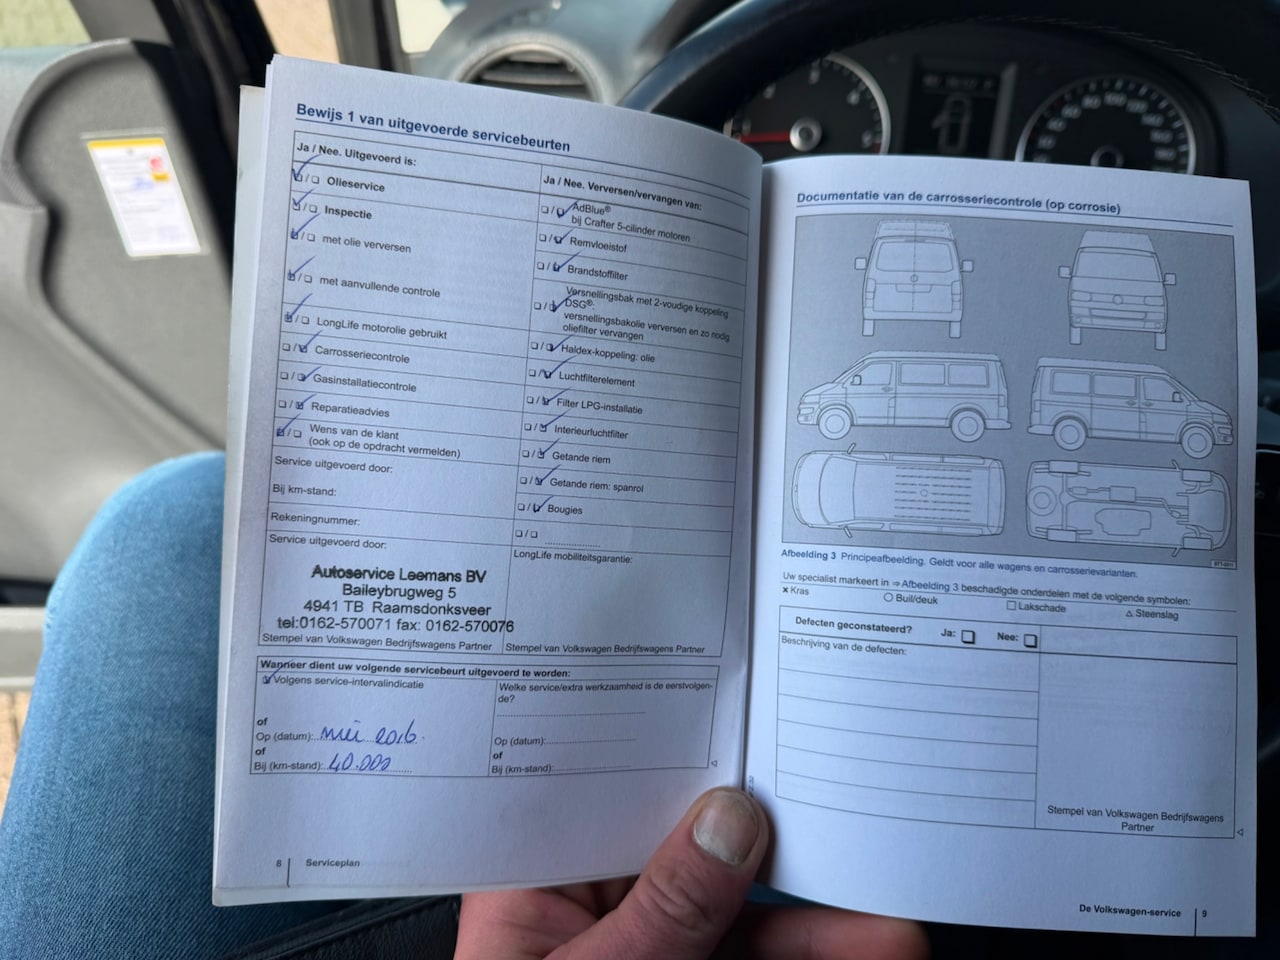 Bewijs 1 van uitgevoerde servicebeurten
Ja / Nee. Uitgevoerd is:
Olieservice
Inspectie
met olie verversen
met aanvullende controle
LongLife motorolie gebruikt
Carrosseriecontrole
Gasinstallatiecontrole
Reparatieadvies
Wens van de klant
(ook op de opdracht vermelden)
Service uitgevoerd door:
Bij km-stand:
Rekeningnummer:
Service uitgevoerd door:
Autoservice Leemans BV
Baileybrugweg 5
4941 TB Raamsdonksveer
tel:0162-570071 fax: 0162-570076
Stempel van Volkswagen Bedrijfswagens Partner
Ja / Nee. Verversen/vervangen van:
AdBlue®
bij Crafter 5-cilinder motoren
Remvloeistof
Brandstoffilter
Versnellingsbak met 2-voudige koppeling
DSG®:
versnellingsbakolie verversen en zo nodig
oliefilter vervangen
Haldex-koppeling: olie
Luchtfilterelement
Filter LPG-installatie
Interieurluchtfilter
Getande riem
Getande riem: spanrol
Bougies
LongLife mobiliteitsgarantie:
Stempel van Volkswagen Bedrijfswagens Partner
Wanneer dient uw volgende servicebeurt uitgevoerd te worden:
Volgens service-intervalindicatie
of
Op (datum): mei 2016.
of
Bij (km-stand): 40.000
Welke service/extra werkzaamheid is de eerstvolgen-
de?
Op (datum):
of
Bij (km-stand):
8 Serviceplan
Documentatie van de carrosseriecontrole (op corrosie)
Afbeelding 3 Principeafbeelding. Geldt voor alle wagens en carrosserievarianten.
Uw specialist markeert in ⇒ Afbeelding 3 beschadigde onderdelen met de volgende symbolen:
× Kras ○ Buil/deuk □ Lakschade △ Steenslag
Defecten geconstateerd? Ja: Nee:
Beschrijving van de defecten:
Stempel van Volkswagen Bedrijfswagens
Partner
De Volkswagen-service 9